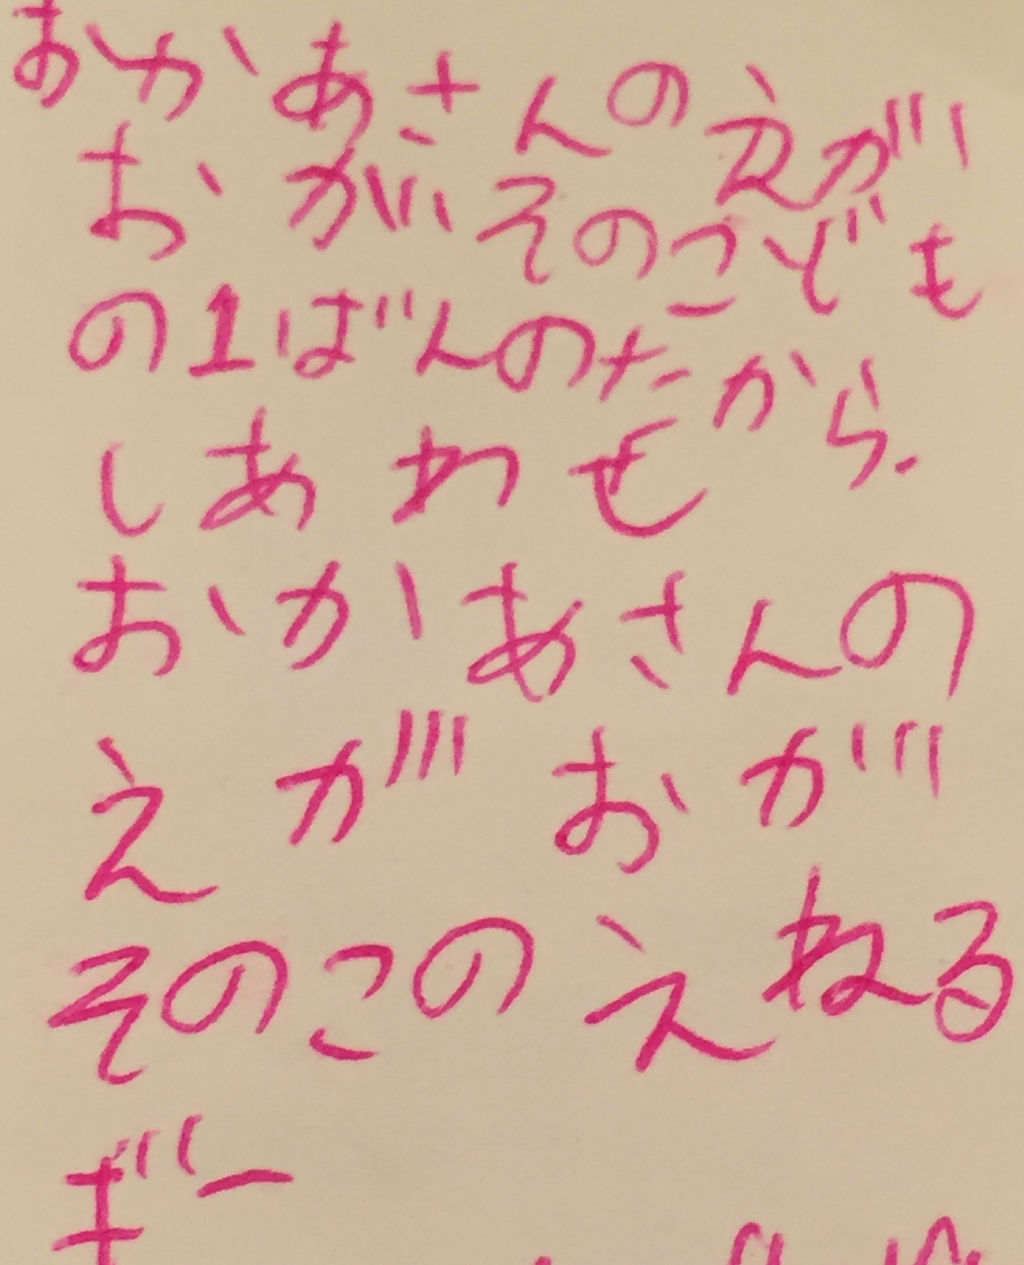 おかあさんのえが
おがそのこども
の1ばんのたから
しあわせ
おかあさんの
えがおが
そのこのえねる
ぎー